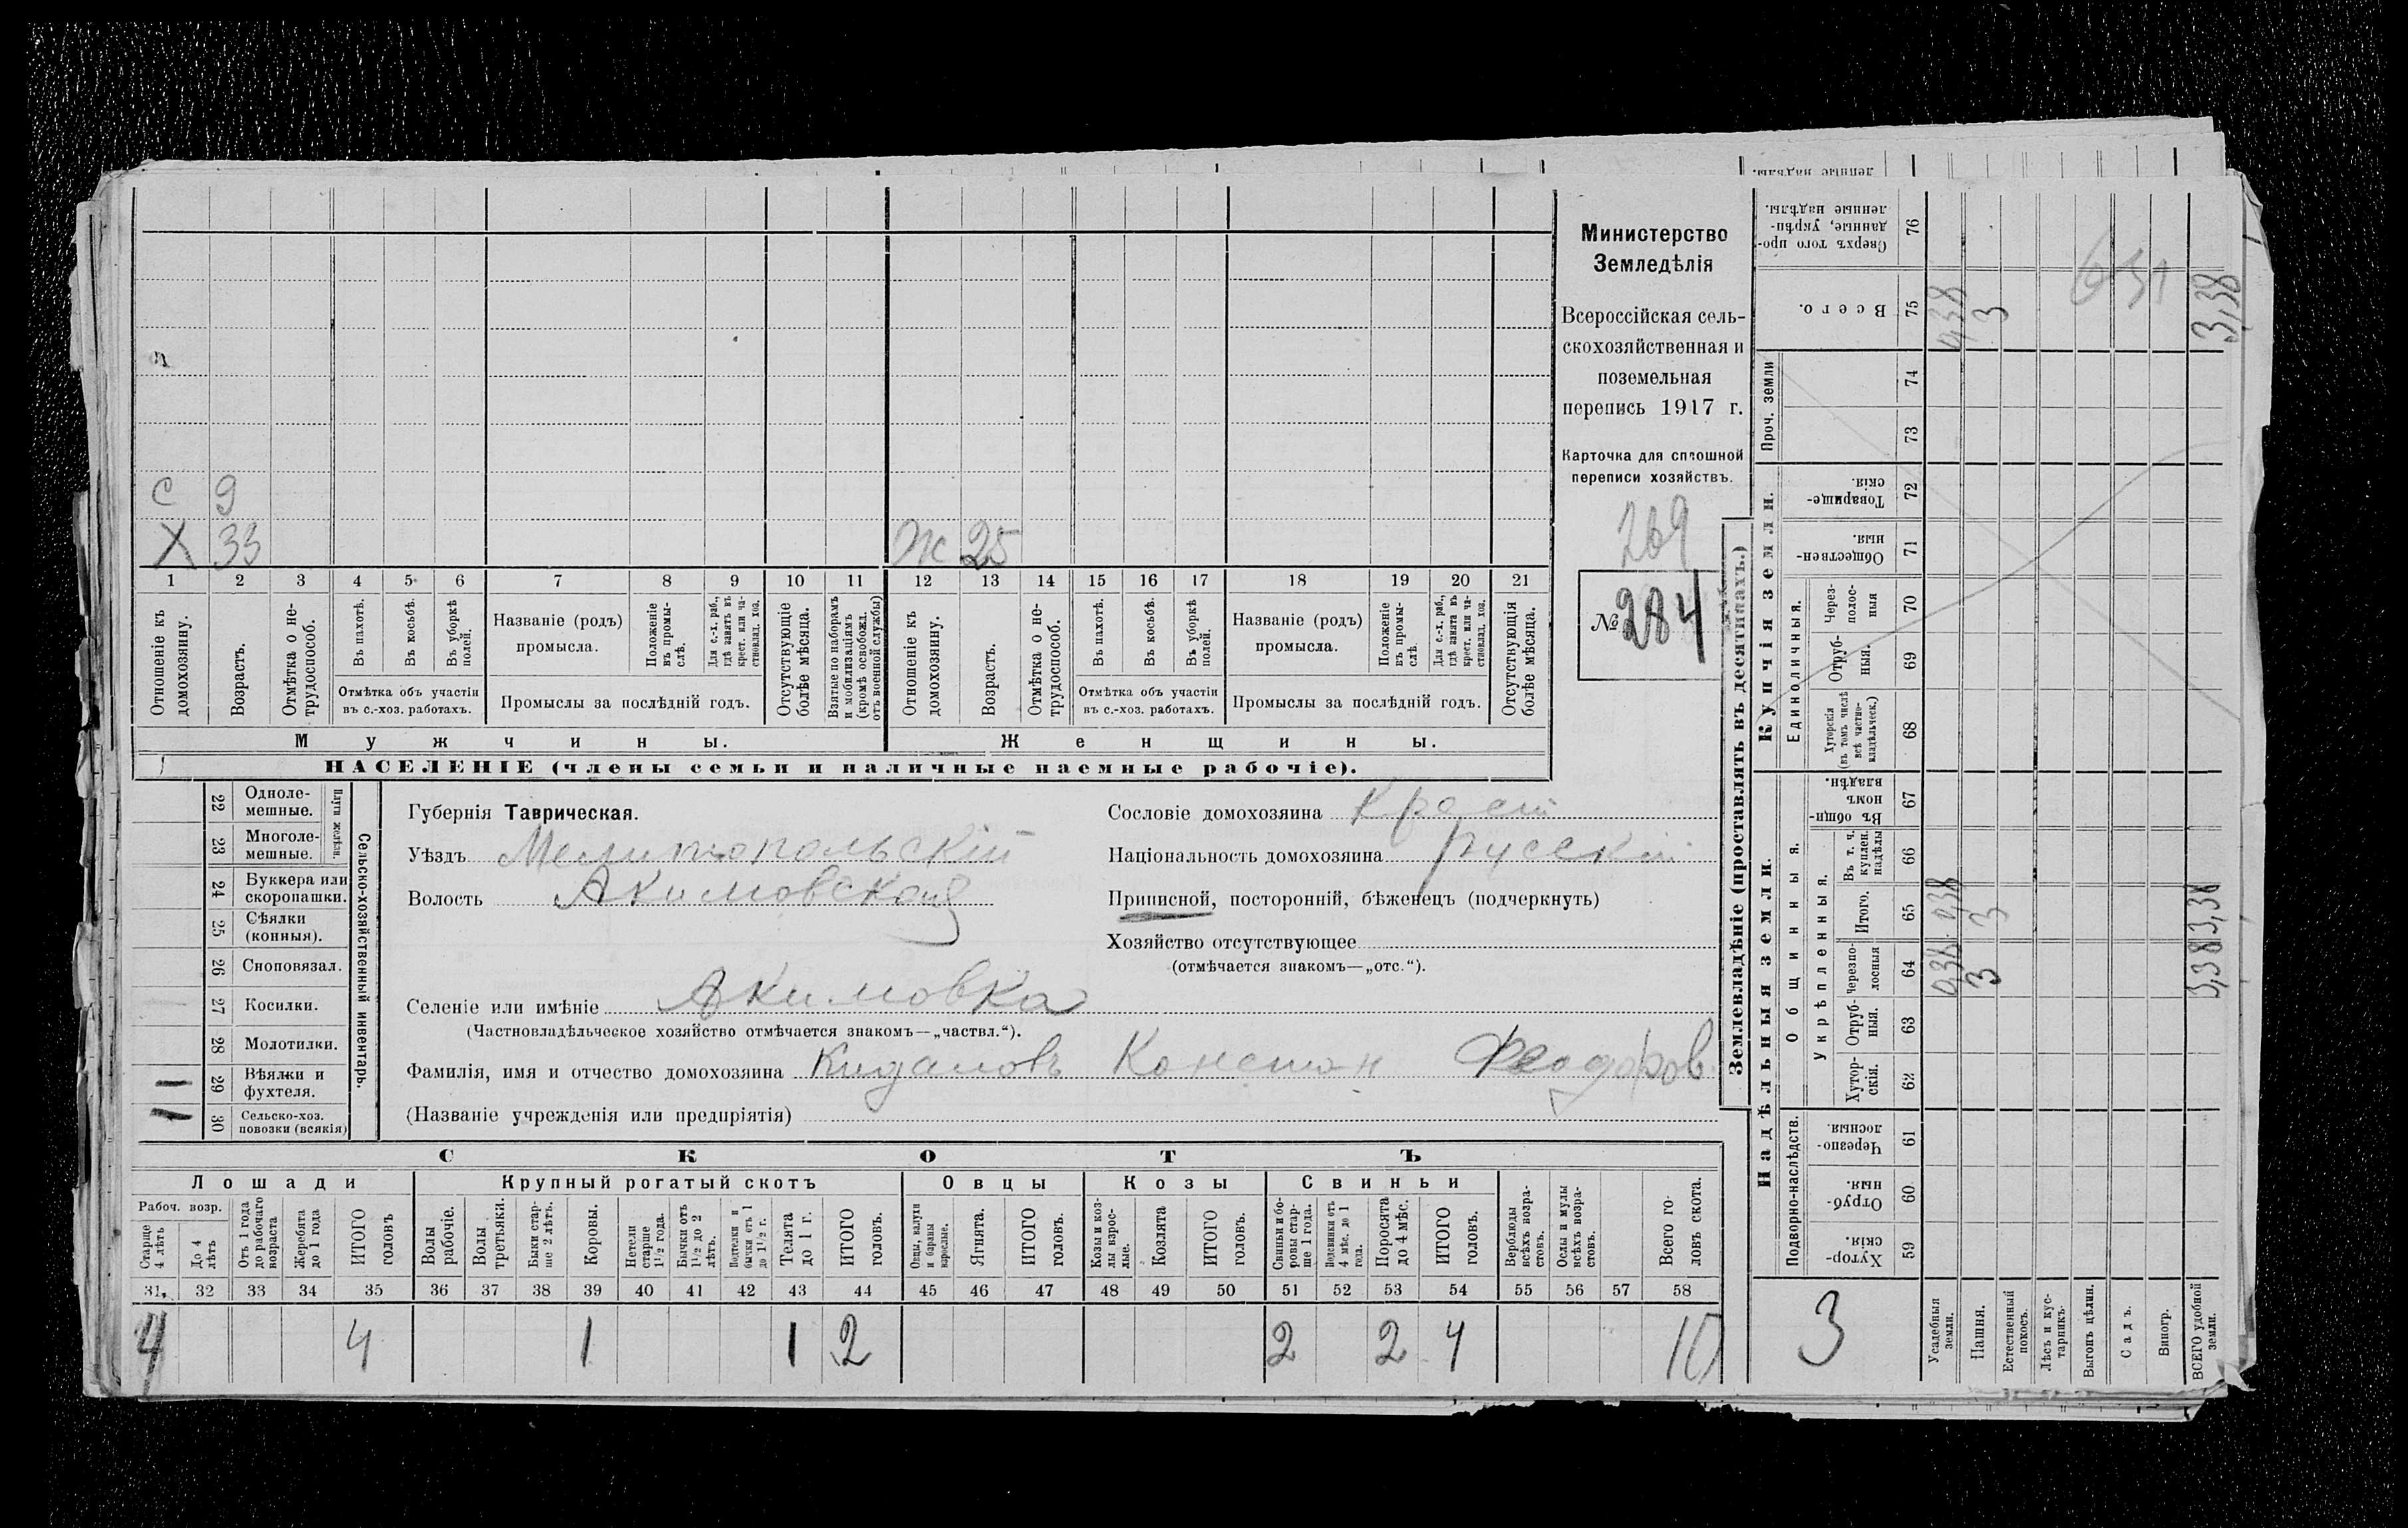 Министерство
Земледѣлія
Всероссійская сель-
скохозяйственная и
поземельная
перепись 1917 г.
Карточка для сплошной
переписи хозяйствъ.
269
№ 284
с 9
Х 33
Ж 25
1 2 3 4 5 6 7 8 9 10 11 12 13 14 15 16 17 18 19 20 21
Отношеніе къ домохозяину.
Возрастъ.
Отмѣтка о не-трудоспособ.
Въ пахотѣ.
Въ косьбѣ.
Въ уборкѣ полей.
Отмѣтка объ участіи
въ с.-хоз. работахъ.
Названіе (родъ)
промысла.
Положеніе въ промы-слѣ.
Для с.-х. раб., гдѣ занятъ въ крест. или ча-стновлад. хоз.
Промыслы за послѣдній годъ.
Отсутствующіе болѣе мѣсяца.
Взятые по наборамъ и мобилизаціямъ (кромѣ освобожд. отъ военной службы)
Отношеніе къ домохозяину.
Возрастъ.
Отмѣтка о не-трудоспособ.
Въ пахотѣ.
Въ косьбѣ.
Въ уборкѣ полей.
Отмѣтка объ участіи
въ с.-хоз. работахъ.
Названіе (родъ)
промысла.
Положеніе въ промы-слѣ.
Для с.-х. раб., гдѣ занята въ крест. или ча-стновлад. хоз.
Промыслы за послѣдній годъ.
Отсутствующія болѣе мѣсяца.
Мужчины.
Женщины.
НАСЕЛЕНІЕ (члены семьи и наличные наемные рабочіе).
Сельско-хозяйственный инвентарь.
Плуги желѣзн.
22 Одноле-мешные.
23 Многоле-мешные.
24 Буккера или скоропашки.
25 Сѣялки (конныя).
26 Сноповязал.
27 Косилки.
28 Молотилки.
29 Вѣялки и фухтеля. 1
30 Сельско-хоз. повозки (всякія) 1
Губернія Таврическая.
Уѣздъ Мелитопольскій
Волость Акимовская
Селеніе или имѣніе Акимовка
(Частновладѣльческое хозяйство отмѣчается знакомъ—„частвл.“).
Фамилія, имя и отчество домохозяина Кидаловъ Констан Феодоров
(Названіе учрежденія или предпріятія)
Сословіе домохозяина Крест
Національность домохозяина Русскій
Приписной, посторонній, бѣженецъ (подчеркнуть)
Хозяйство отсутствующее
(отмѣчается знакомъ—„отс.“).
СКОТЪ
Лошади
Крупный рогатый скотъ
Овцы
Козы
Свиньи
Рабоч. возр.
Старше 4 лѣтъ
До 4 лѣтъ
Отъ 1 года до рабочаго возраста
Жеребята до 1 года
ИТОГО головъ
Волы рабочіе.
Волы третьяки.
Быки стар-ше 2 лѣтъ.
Коровы.
Нетели старше 1½ года.
Бычки отъ 1½ до 2 лѣтъ.
Подтелки и бычки отъ 1 до 1½ г.
Телята до 1 г.
ИТОГО головъ.
Овцы, валухи и бараны взрослые.
Ягнята.
ИТОГО головъ.
Козы и коз-лы взрос-лые.
Козлята
ИТОГО головъ.
Свиньи и бо-ровы стар-ше 1 года.
Подсвинки отъ 4 мѣс. до 1 года.
Поросята до 4 мѣс.
ИТОГО головъ.
Верблюды всѣхъ возра-стовъ.
Ослы и мулы всѣхъ возра-стовъ.
Всего го-ловъ скота.
31 32 33 34 35 36 37 38 39 40 41 42 43 44 45 46 47 48 49 50 51 52 53 54 55 56 57 58
4 4 1 1 2 2 2 4 10
Землевладѣніе (проставлять въ десятинахъ.)
Надѣльныя земли.
Купчія земли.
Проч. земли
Подворно-наслѣдств.
Общинныя.
Укрѣпленныя.
Единоличныя.
Сверхъ того про-данные, укрѣп-ленные надѣлы. 76
Всего. 75 0,38 3 3,38
651
74
73
Товарище-скія. 72
Обществен-ныя. 71
Через-полос-ныя 70
Отруб-ныя. 69
Хуторскія (въ томъ числѣ всѣ частно-владѣльческ.) 68
Въ общи-номъ владѣн. 67
Въ т. ч. куплен. надѣлы 66
Итого. 65 0,38 3 3,38
Черезпо-лосныя 64 0,38 3 3,38
Отруб-ныя. 63
Хутор-скія. 62
Черезпо-лосныя. 61
Отруб-ныя. 60
Хутор-скія. 59
3
Усадебныя земли.
Пашня.
Естественный покосъ.
Лѣсъ и кус-тарникъ.
Выгонъ цѣлин.
Садъ.
Виногр.
ВСЕГО удобной земли.